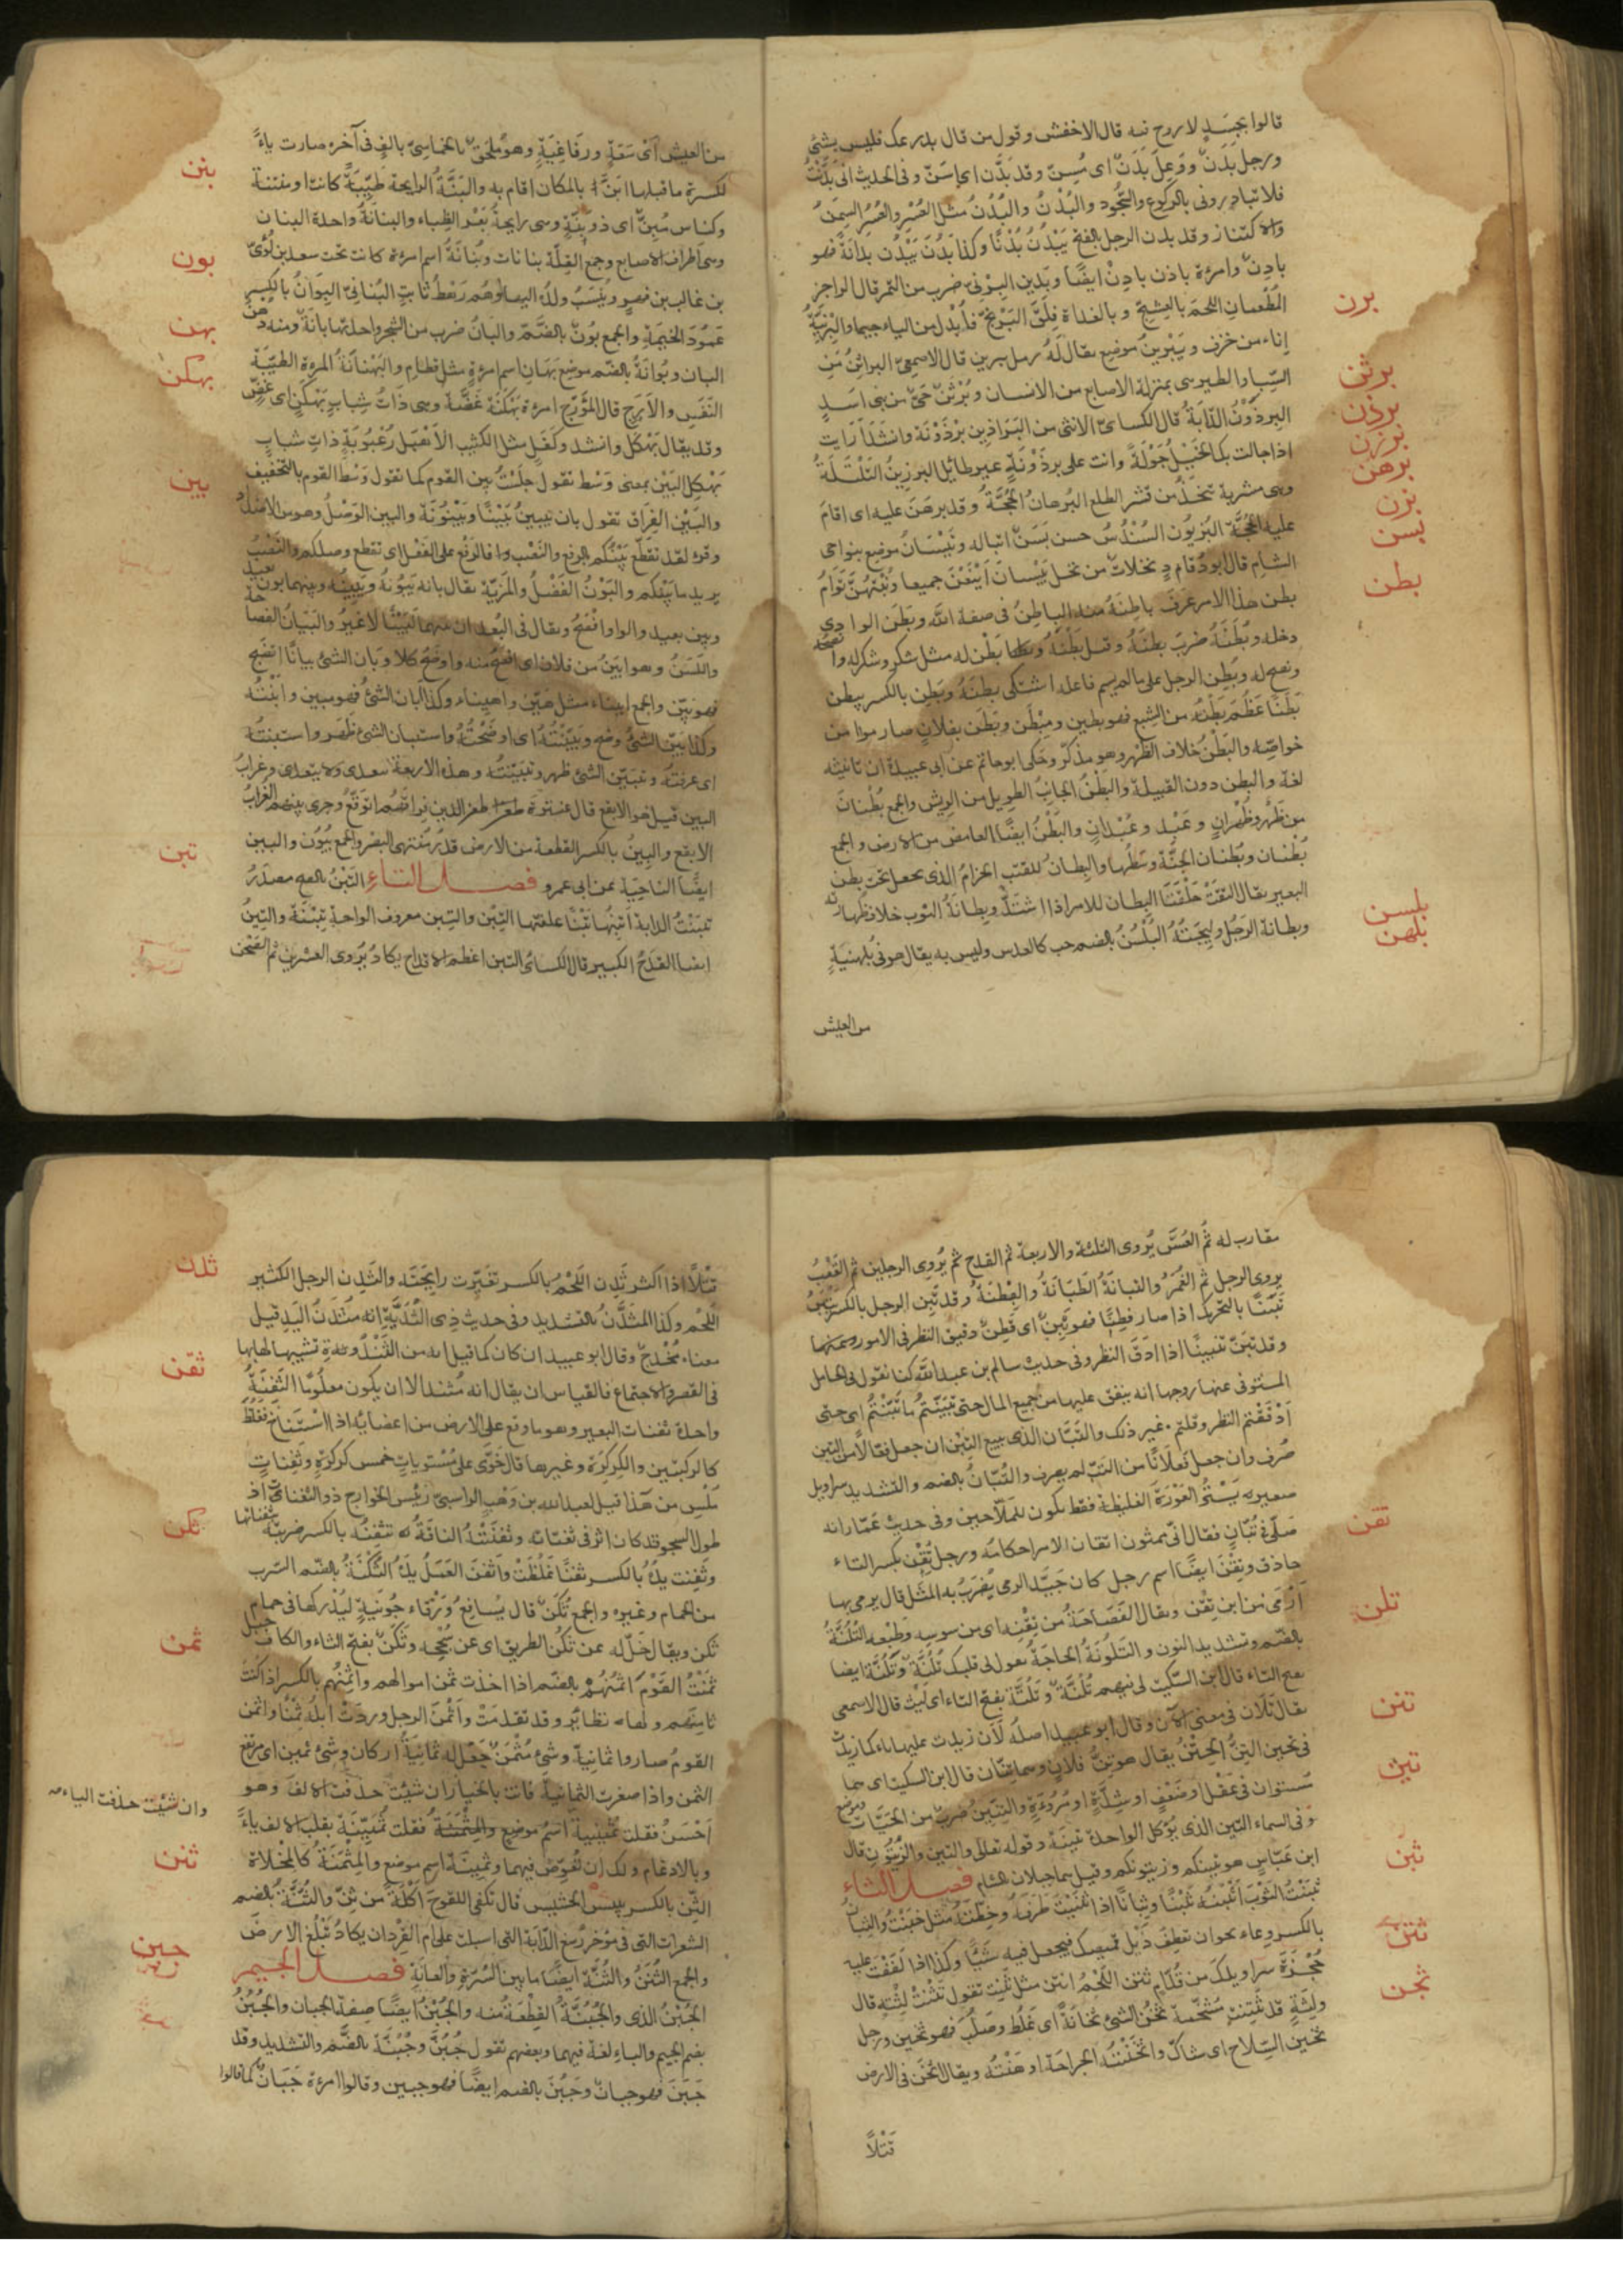 قالوا بجسد لا روح فيه قال الاخفش وقول من قال بدرعك فليس بشئ
ورجل بدن ووعل بدن اى مسن وقد بدن اى اسن وفى الحديث انى بدنت
فلا تبادرونى بالركوع والسجود والبدن والبدن مثل العسر والعسر السمن
والاكتناز وقد بدن الرجل بالفتح يبدن بدنا وكذا بدن يبدن بدانة فهو
بادن وامرءة بادن ايضا وبدين البرنى ضرب من التمر قال الراجز
برن
المطعمان اللحم بالعشج وبالغداة فلق البرنج فابدل من الياء جيما والبرنية
اناء من خزف ويبرين موضع يقال له رمل يبرين قال الاصمعى البراثن من
برثن
السباع والطير هى بمنزلة الاصابع من الانسان وبرثن حى من بنى اسد
برذن
البرذون الدابة قال الكسائى الانثى من البراذين برذونة وانشد ارايت
برزن
اذا جالت بك الخيل جولة وانت على برذونة غير طائل البرزين التلتلة
برهن
وهى مشربة تتخذ من قشر الطلع البرهان الحجة وقد برهن عليه اى اقام
بزن
عليه الحجة البزيون السندس حسن بسن اتباله وبيسان موضع بنواحى
بسن
الشام قال ابو دوام نخلات من نخل بيسان اينعن جميعا ونبتهن توام
بطن
بطن هذا الامر عرف باطنه منه الباطن فى صفة الله وبطن الوادى
دخله وبطنه ضرب بطنه وقيل بطنه بطن له مثل شكره وشكر له
ونصح له وبطن الرجل على ما لم يسم فاعله اشتكى بطنه وبطن بالكسر يبطن
بطنا عظم بطنه من الشبع فهو بطين ومبطن وبطن بفلان صار من
خواصه والبطن خلاف الظهر وهو مذكر وحكى ابو حاتم عن ابى عبيدة ان تانيثه
لغة والبطن دون القبيلة والبطن الجانب الطويل من الريش والجمع بطنان
من ظهر وظهران وعبد وعبدان والبطن ايضا الغامض من الارض والجمع
بطنان وبطنان الجنة وسطها والبطان للقتب الحزام الذى يجعل تحت بطن
البعير يقال التقت حلقتا البطان للامر اذا اشتد وبطانة الثوب خلاف ظهارته
بلسن
وبطانة الرجل وليجته البلسن بالضم حب كالعدس وليس به يقال هو فى بلهنية
بلهن
من العيش
من العيش اى سعة ورفاغية وهو ملحق بالخماسى بالف فى آخره صارت ياء
بنن
لكسرة ما قبلها ابن بالمكان اقام به والبنة الرايحة طيبة كانت او منتنة
وكناس مبن اى ذو بنة وهى رايحة بعر الظباء والبنانة واحدة البنان
بون
وهى اطراف الاصابع وجمع القلة بنانات وبنانة اسم امرءة كانت تحت سعد بن لؤى
بن غالب بن فهر وينسب ولده اليها وهم رهط ثابت البنانى البوان بالكسر
بهن
عمود الخيمة والجمع بون بالضم والبان ضرب من الشجر واحدتها بانة ومنه دهن
البان وبوانة بالضم موضع بهان اسم امرءة مثل قطام والبهنانة المرءة الطيبة
بهكن
النفس والارج قال المؤرج امرءة بهكنة غضة وهى ذات شباب بهكن اى غض
وقد يقال بهكل وانشد وكفل مثل الكثيب الاهيل رعبوبة ذات شباب
بين
بهكل البين بمعنى وسط تقول جلست بين القوم كما تقول وسط القوم بالتخفيف
والبين الفراق تقول بان يبين بينا وبينونة والبين الوصل وهو من الاضداد
وقرء لقد تقطع بينكم بالرفع والنصب فالرفع على الفعل اى تقطع وصلكم والنصب
يريد ما بينكم والبون الفضل والمزية يقال بانه يبونه ويبينه وبينهما بون بعيد
وبين بعيد والواو افصح ويقال فى البعد ان بينهما لبينا لا غير والبيان الفصاحة
واللسن وهو ابين من فلان اى افصح منه واوضح كلاما وبان الشئ بيانا اتضح
فهو بين والجمع ابيناء مثل هين واهيناء وكذا ابان الشئ فهو مبين وابنته
وكذا بين الشئ وضح وبينته اى اوضحته واستبان الشئ ظهر واستبنته
اى عرفته وتبين الشئ ظهر وتبينته وهذه الاربعة تتعدى ولا تتعدى وغراب
البين قيل هو الابقع قال عنترة ظعن الذين فراقهم اتوقع وجرى ببينهم الغراب
الابقع والبين بالكسر القطعة من الارض قدر منتهى البصر والجمع بيون والبين
تبن
ايضا الناحية عن ابى عمرو فصل التاء التبن بالفتح مصدر
تبنت الدابة اتبنها تبنا علفتها التبن والتبن معروف الواحدة تبنة والتبن
ايضا القدح الكبير قال الكسائى التبن اعظم الاقداح يكاد يروى العشرين ثم الصحن
مقارب له ثم العس يروى الثلثة والاربعة ثم القدح ثم يروى الرجلين ثم القعب
يروى الرجل ثم الغمر والتبانة الطبانة والفطنة وقد تبن الرجل بالكسر يتبن
تبنا بالتحريك اذا صار فطنا فهو تبن اى فطن دقيق النظر فى الامور
وقد تبن تتبينا اذا ادق النظر وفى حديث سالم بن عبد الله كنا نقول فى الحامل
المتوفى عنها زوجها انه ينفق عليها من جميع المال حتى تبنتم ما تبنتم اى حتى
ادققتم النظر وقلتم غير ذلك والتبان الذى يبيع التبن ان جعل فعالا من التبن
صرف وان جعل فعلانا من التب لم يصرف والتبان بالضم والتشديد سراويل
صغير به يستر العورة الغليظة فقط يكون للملاحين وفى حديث عمار انه
تقن
صلى فى تبان فقال انى ممثون اتقان الامر احكامه ورجل تقن بكسر التاء
حاذق وتقن ايضا اسم رجل كان جيد الرمى يضرب به المثل قال يرمى بها
تلن
ارمى من ابن تقن ويقال الفصاحة من تقنه اى من سوسه وطبعه التلنة
بالضم وتشديد النون والتلونة الحاجة تقول لى قبلك تلنة وتلنة ايضا
بفتح التاء قال ابن السكيت لى فيهم تلنة وتلنة بفتح التاء اى لبث قال الاصمعى
تنن
يقال تلان فى معنى الآن وقال ابو عبيد اصله لان زيدت عليها تاء كما زيدت
فى تحين التن الحتن يقال هو تن فلان وهما تنان قال ابن السكيت اى هما
تين
مستويان فى عقل او ضعف او شدة او مروءة والتنين ضرب من الحيات وموضع
فى السماء التين الذى يؤكل الواحدة تينة وقوله تعالى والتين والزيتون قال
ثبن
ابن عباس هو تينكم وزيتونكم وقيل هما جبلان بالشام فصل الثاء
ثبنت الثوب اثبنه ثبنا وثبانا اذا ثنيت طرفه وخطته مثل خبنت والثبان
ثتن
بالكسر وعاء نحو ان تعطف ذيل قميصك فيجعل فيه شيئا وكذا اذا لففت عليه
ثخن
حجزة سراويلك من قدام ثتن اللحم انتن مثل ثنت تقول ثتنت لثته قال
ولثة قد ثتنت مشخمة ثخن الشئ ثخانة اى غلظ وصلب فهو ثخين ورجل
ثخين السلاح اى شاك واثخنته الجراحة اوهنته ويقال اثخن فى الارض
قتلا
ثدن
قتلا اذا اكثر ثدن اللحم بالكسر تغيرت رايحته والثدن الرجل الكثير
اللحم وكذا المثدن بالتشديد وفى حديث ذى الثدية انه مثدن اليد قيل
معناه مخدج وقال ابو عبيد ان كان كما قيل انه من الثندوة تشبيها لها بها
ثفن
فى القصر والاجتماع فالقياس ان يقال انه مثند الا ان يكون مقلوبا الثفنة
واحدة ثفنات البعير وهو ما وقع على الارض من اعضائه اذا استناخ فغلظ
كالركبتين والكركرة وغيرها قال خوى على مستويات خمس كركرة وثفنات
ملس من هذا قيل لعبد الله بن وهب الراسبى رئيس الخوارج ذو الثفنات اذ
ثكن
طول السجود قد كان اثر فى ثفناته وثفنته الناقة تثفنه بالكسر ضربته بثفناتها
وثفنت يده بالكسر ثفنا غلظت واثفن العمل يده الثكنة بالضم السرب
من الحمام وغيره والجمع ثكن قال يسافع ورقاء جونية ليدركها فى حمام
ثمن
ثكن ويقال خل له عن ثكن الطريق اى عن سجحه وثكن بفتح الثاء والكاف جبل
ثمنت القوم اثمنهم بالضم اذا اخذت ثمن اموالهم واثمنهم بالكسر اذا كنت
ثامنهم ولهما نظائر وقد تقدمت واثمن الرجل وردت ابله ثمنا واثمن
القوم صاروا ثمانية وشئ مثمن جعل له ثمانية اركان وشئ ثمين اى مرتفع
الثمن واذا صغرت الثمانية فانت بالخيار ان شئت حذفت الالف وهو
وان شئت حذفت الياء صح
احسن فقلت ثمينية اسم موضع والمثمنة فقلت ثمينية بقلب الالف ياء
وبالادغام ولك ان تعوض فيهما وثمينة اسم موضع والمثمنة كالمخلاة
ثنن
الثن بالكسر يبيس الحشيش قال تكفى اللقوح اكلة من ثن والثنة بالضم
الشعرات التى فى مؤخر رسغ الدابة التى اسبلت على ام القردان يكاد تبلغ الارض
جبن
والجمع الثنن والثنة ايضا ما بين السرة والعانة فصل الجيم
الجبن الذى والجبنة القطعة منه والجبن ايضا صفة الجبان والجبن
بضم الجيم والباء لغة فيهما وبعضهم تقول جبن وجبنة بالضم والتشديد وقد
جبن فهو جبان وجبن بالضم ايضا فهو جبين وقالوا امرءة جبان كما قالوا